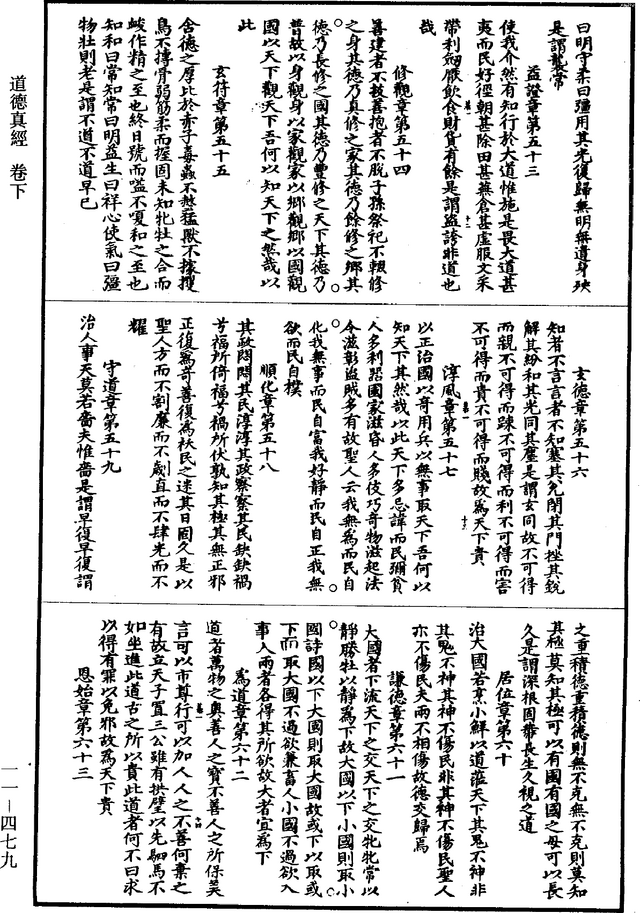 道德真經 卷下
曰明守柔曰強用其光復歸無明無遺身殃
是謂襲常
益證章第五十三
使我介然有知行於大道惟施是畏大道甚
夷而民好徑朝甚除田甚蕪倉甚虛服文采
帶利劒厭飲食財貨有餘是謂盜誇非道也
哉
修觀章第五十四
善建者不拔善抱者不脫子孫祭祀不輟修
之身其德乃真修之家其德乃餘修之鄉其
德乃長修之國其德乃豐修之天下其德乃
普故以身觀身以家觀家以鄉觀鄉以國觀
國以天下觀天下吾何以知天下之然哉以
此
玄符章第五十五
含德之厚比於赤子毒蟲不螫猛獸不據攫
鳥不搏骨弱筋柔而握固未知牝牡之合而
峻作精之至也終日號而嗌不嗄和之至也
知和曰常知常曰明益生曰祥心使氣曰強
物壯則老是謂不道不道早已
玄德章第五十六
知者不言言者不知塞其兌閉其門挫其銳
解其紛和其光同其塵是謂玄同故不可得
而親不可得而踈不可得而利不可得而害
不可得而貴不可得而賤故為天下貴
淳風章第五十七
以正治國以奇用兵以無事取天下吾何以
知天下其然哉以此天下多忌諱而民彌貧
人多利器國家滋昏人多伎巧奇物滋起法
令滋彰盜賊多有故聖人云我無為而民自
化我無事而民自富我好靜而民自正我無
欲而民自樸
順化章第五十八
其政悶悶其民淳淳其政察察其民缺缺禍
兮福所倚福兮禍所伏孰知其極其無正邪
正復為奇善復為祅民之迷其日固久是以
聖人方而不割廉而不劌直而不肆光而不
耀
守道章第五十九
治人事天莫若嗇夫惟嗇是謂早復早復謂
之重積德重積德則無不克無不克則莫知
其極莫知其極可以有國有國之母可以長
久是謂深根固蔕長生久視之道
居位章第六十
治大國若烹小鮮以道蒞天下其鬼不神非
其鬼不神其神不傷民非其神不傷民聖人
亦不傷民夫兩不相傷故德交歸焉
謙德章第六十一
大國者下流天下之交天下之交牝牝常以
靜勝牡以靜為下故大國以下小國則取小
國小國以下大國則取大國故或下以取或
下而取大國不過欲兼畜人小國不過欲入
事人兩者各得其所欲故大者宜為下
為道章第六十二
道者萬物之奧善人之寶不善人之所保美
言可以市尊行可以加人人之不善何棄之
有故立天子置三公雖有拱璧以先駟馬不
如坐進此道古之所以貴此道者何不曰求
以得有罪以免邪故為天下貴
恩始章第六十三
一一－四七九